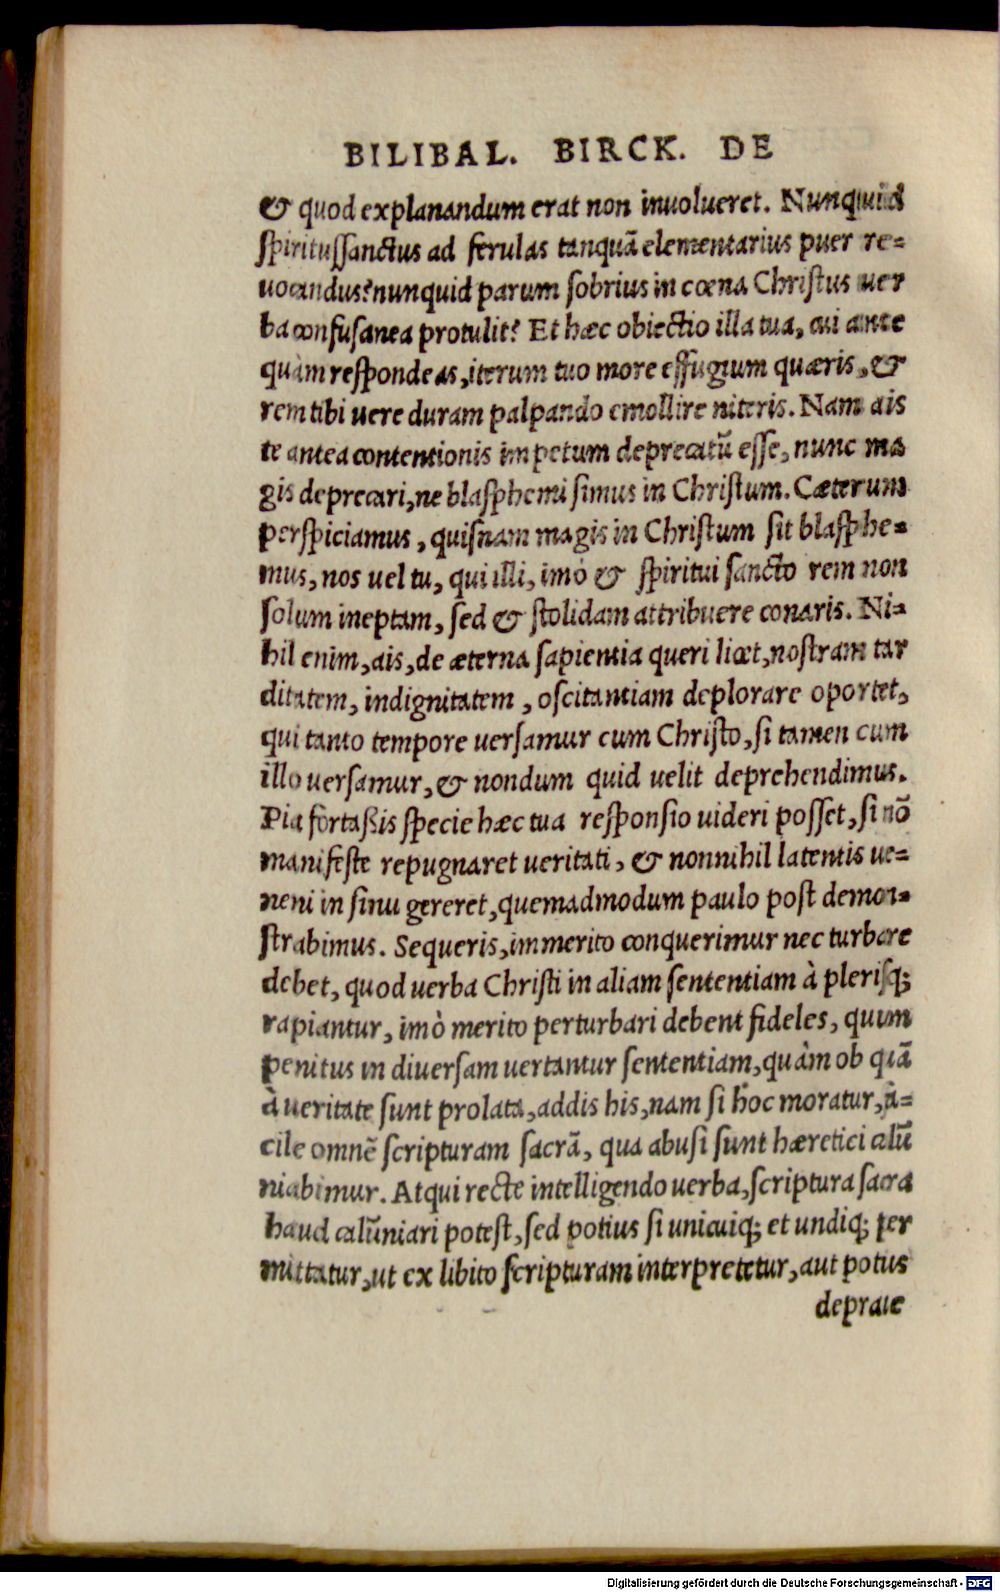 BILIBAL. BIRCK. DE
& quod explanandum erat non inuolueret. Nunquid
ſpirituſſanctus ad ferulas tanquā elementarius puer re=
uocandus? nunquid parum ſobrius in cœna Chriſtus uer
ba confuſanea protulit? Et hæc obiectio illa tua, cui ante
quàm reſpondeas, iterum tuo more effugium quæris, &
rem tibi uere duram palpando emollire niteris. Nam ais
te antea contentionis impetum deprecatū eſſe, nunc ma
gis deprecari, ne blaſphemi ſimus in Chriſtum. Cæterum
perſpiciamus, quiſnam magis in Chriſtum ſit blaſphe=
mus, nos uel tu, qui illi, imò & ſpiritui ſancto rem non
ſolum ineptam, ſed & ſtolidam attribuere conaris. Ni=
hil enim, ais, de æterna ſapientia queri licet, noſtram tar
ditatem, indignitatem, oſcitantiam deplorare oportet,
qui tanto tempore uerſamur cum Chriſto, ſi tamen cum
illo uerſamur, & nondum quid uelit deprehendimus.
Pia fortaßis ſpecie hæc tua reſponſio uideri poſſet, ſi nō
manifeſte repugnaret ueritati, & nonnihil latentis ue=
neni in ſinu gereret, quemadmodum paulo poſt demon=
ſtrabimus. Sequeris, immerito conquerimur nec turbare
debet, quod uerba Chriſti in aliam ſententiam à pleriſq;
rapiantur, imò merito perturbari debent fideles, quum
penitus in diuerſam uertantur ſententiam, quàm ob quā
à ueritate ſunt prolata, addis his, nam ſi hoc moratur, fa=
cile omnē ſcripturam ſacrā, qua abuſi ſunt hæretici calū
niabimur. Atqui recte intelligendo uerba, ſcriptura ſacra
haud calūniari poteſt, ſed potius ſi unicuiq; et undiq; per
mittatur, ut ex libito ſcripturam interpretetur, aut potius
deprauе
Digitalisierung gefördert durch die Deutsche Forschungsgemeinschaft - DFG